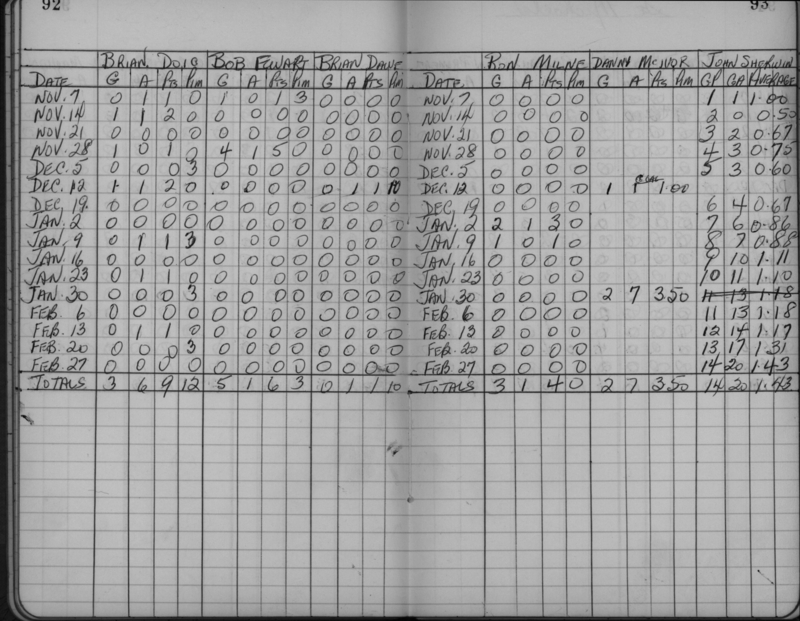 92 93
BRIAN DOIG BOB EWART BRIAN DAWE RON MILNE DANNY MCIVOR JOHN SHERWIN
DATE G A Pts Pim G A Pts Pim G A Pts Pim DATE G A Pts Pim G A Pts Pim GP GA AVERAGE
NOV. 7 0 1 1 0 1 0 1 3 0 0 0 0 NOV. 7 0 0 0 0 1 1 1.00
NOV. 14 1 1 2 0 0 0 0 0 0 0 0 0 NOV. 14 0 0 0 0 2 0 0.50
NOV. 21 0 0 0 0 0 0 0 0 0 0 0 0 NOV. 21 0 0 0 0 3 2 0.67
NOV. 28 1 0 1 0 4 1 5 0 0 0 0 0 NOV. 28 0 0 0 0 4 3 0.75
DEC. 5 0 0 0 3 0 0 0 0 0 0 0 0 DEC. 5 0 0 0 0 5 3 0.60
DEC. 12 1 1 2 0 0 0 0 0 0 1 1 10 DEC. 12 0 0 0 0 1 1 1.00
DEC. 19 0 0 0 0 0 0 0 0 0 0 0 0 DEC. 19 0 0 0 0 6 4 0.67
JAN. 2 0 0 0 0 0 0 0 0 0 0 0 0 JAN. 2 2 1 3 0 7 6 0.86
JAN. 9 0 1 1 3 0 0 0 0 0 0 0 0 JAN. 9 1 0 1 0 8 7 0.88
JAN. 16 0 0 0 0 0 0 0 0 0 0 0 0 JAN. 16 0 0 0 0 9 10 1.11
JAN. 23 0 1 1 0 0 0 0 0 0 0 0 0 JAN. 23 0 0 0 0 10 11 1.10
JAN. 30 0 0 0 3 0 0 0 0 0 0 0 0 JAN. 30 0 0 0 0 2 7 3.50 11 13 1.18
FEB. 6 0 0 0 0 0 0 0 0 0 0 0 0 FEB. 6 0 0 0 0 11 13 1.18
FEB. 13 0 1 1 0 0 0 0 0 0 0 0 0 FEB. 13 0 0 0 0 12 14 1.17
FEB. 20 0 0 0 3 0 0 0 0 0 0 0 0 FEB. 20 0 0 0 0 13 17 1.31
FEB. 27 0 0 0 0 0 0 0 0 0 0 0 0 FEB. 27 0 0 0 0 14 20 1.43
TOTALS 3 6 9 12 5 1 6 3 0 1 1 10 TOTALS 3 1 4 0 2 7 3.50 14 20 1.43